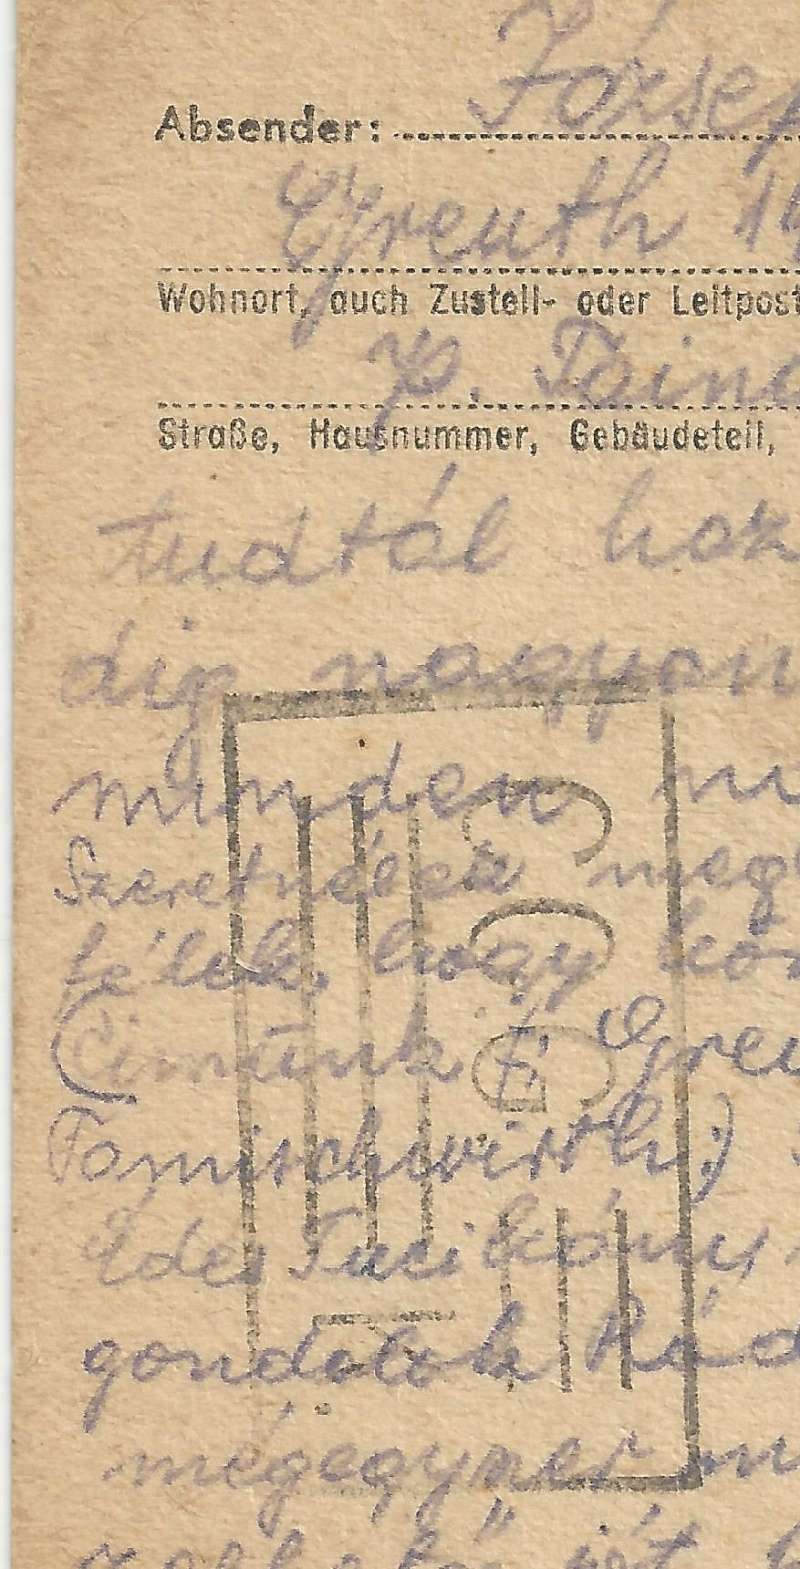 Absender: József
Greuth 14
Wohnort, auch Zustell- oder Leitpost
P. Tain
Straße, Hausnummer, Gebäudeteil,
tudtál hoz
dig nagyon
minden
Szeretnélek meg
félek, hogy
Címünk: Greu
Tamischwirth.)
Édes Tuci
gondolok Rád
mégegyszer m
jót